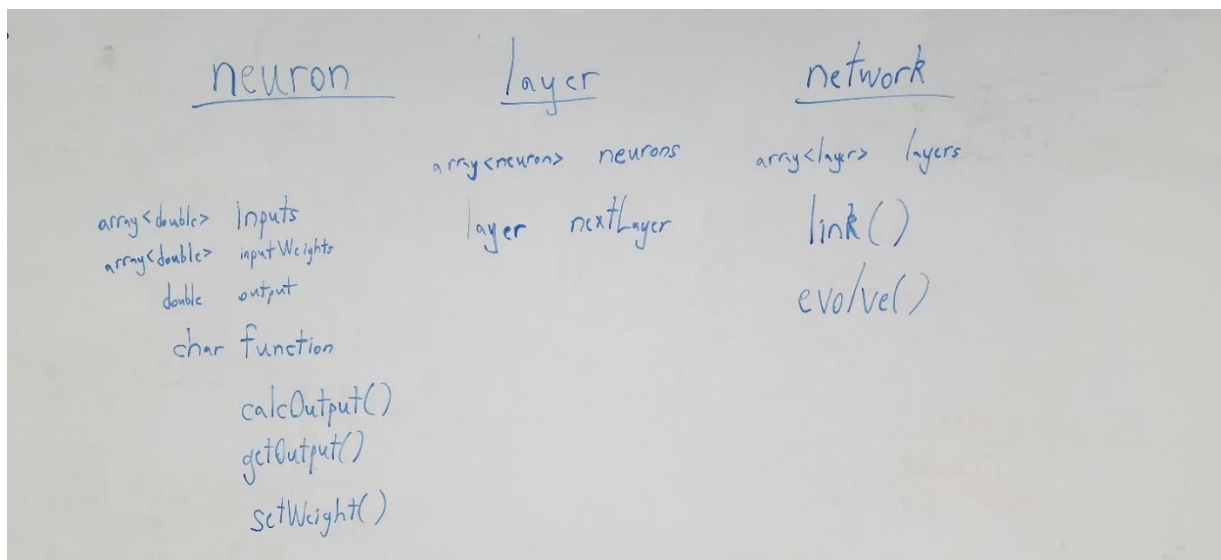 neuron
array<double> inputs
array<double> inputWeights
double output
char function
calcOutput()
getOutput()
setWeight()
layer
array<neuron> neurons
layer nextLayer
network
array<layer> layers
link()
evolve()